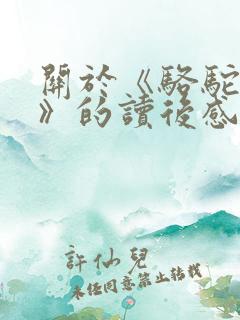 關於《駱駝
》的讀後感
許仙兒
未经同意禁止转载